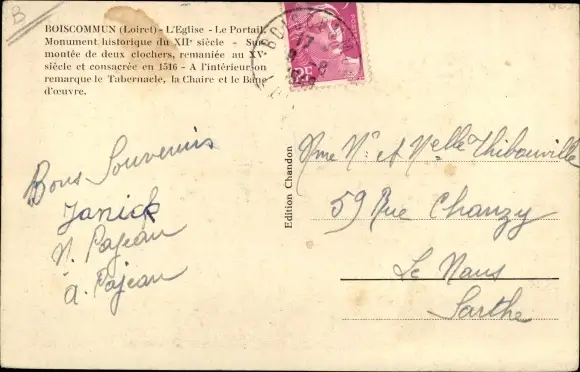 B
BOISCOMMUN (Loiret) - L'Eglise - Le Portail.
Monument historique du XIIe siècle - Sur-
montée de deux clochers, remaniée au XVe
siècle et consacrée en 1516 - A l'intérieur on
remarque le Tabernacle, la Chaire et le Banc
d'œuvre.
Bons Souvenirs
Janick
N. Pajeau
a. Pajeau
Edition Chandon
Mme Mr et Melle Thibouville
59 Rue Chanzy
Le Mans
Sarthe